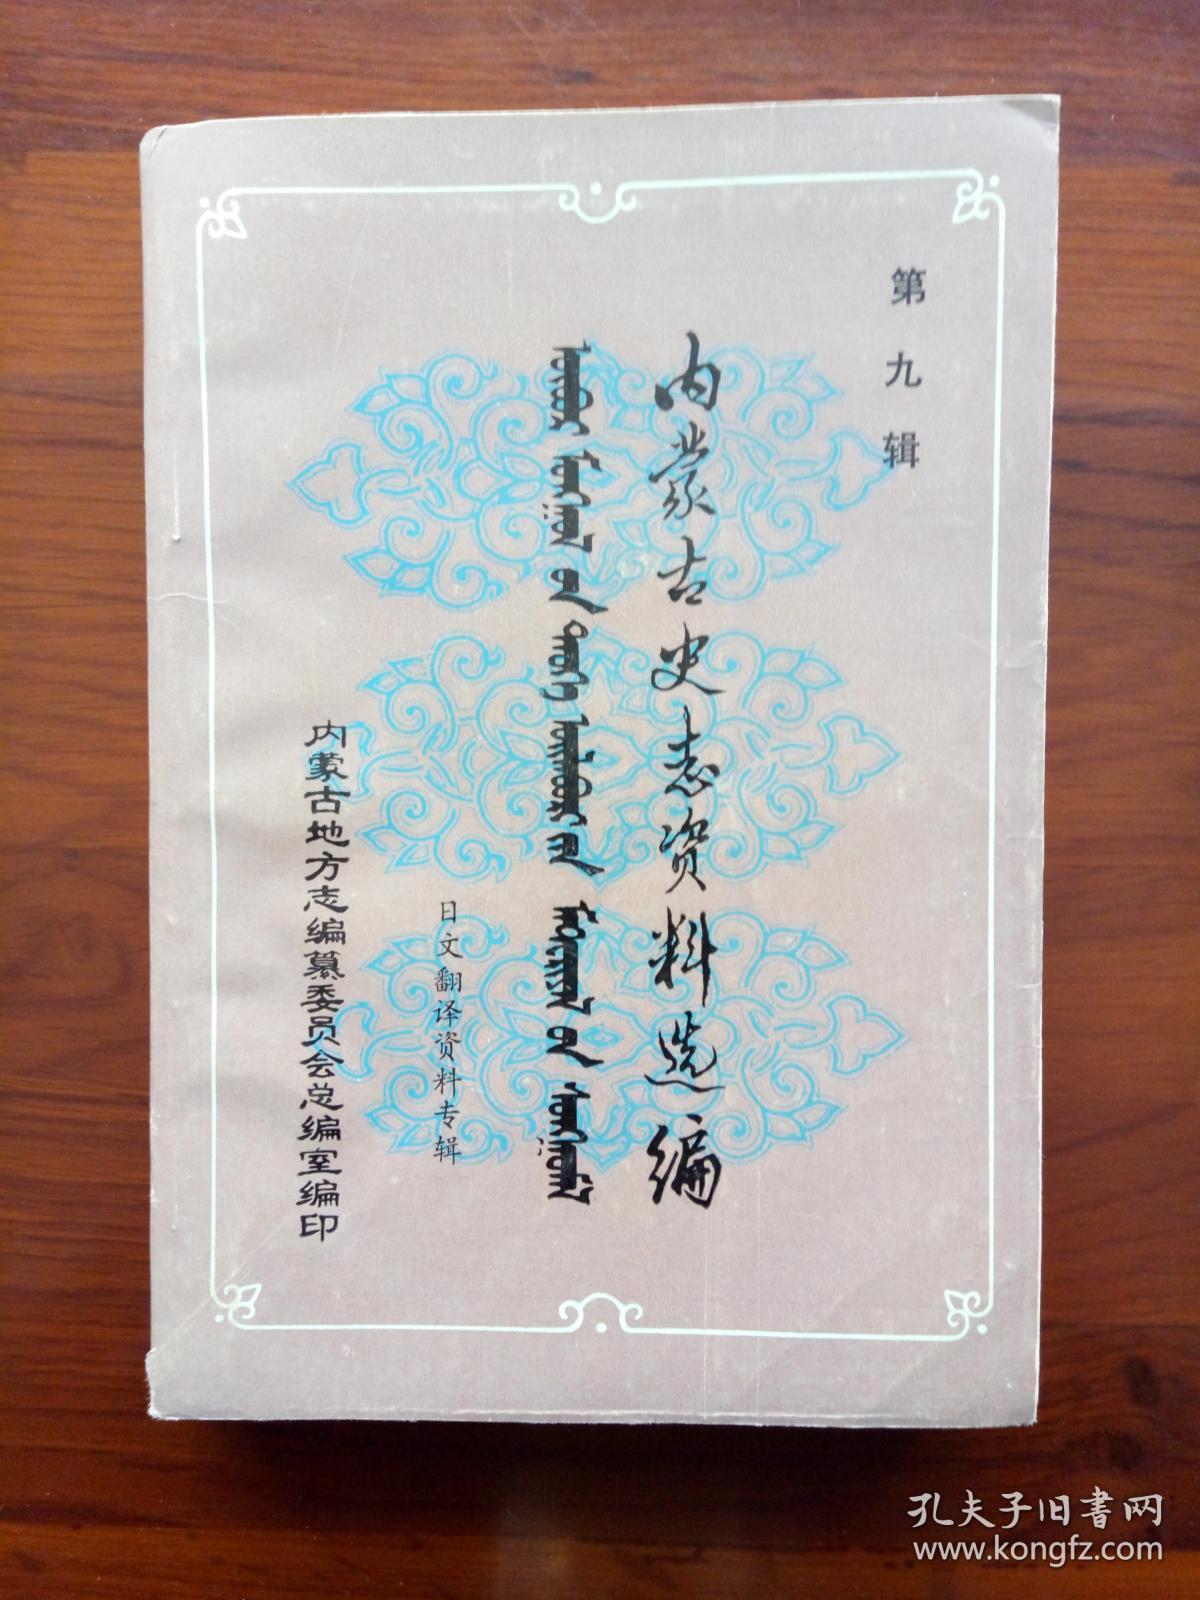 第九辑
内蒙古史志资料选编
日文翻译资料专辑
内蒙古地方志编纂委员会总编室编印
孔夫子旧书网
www.kongfz.com